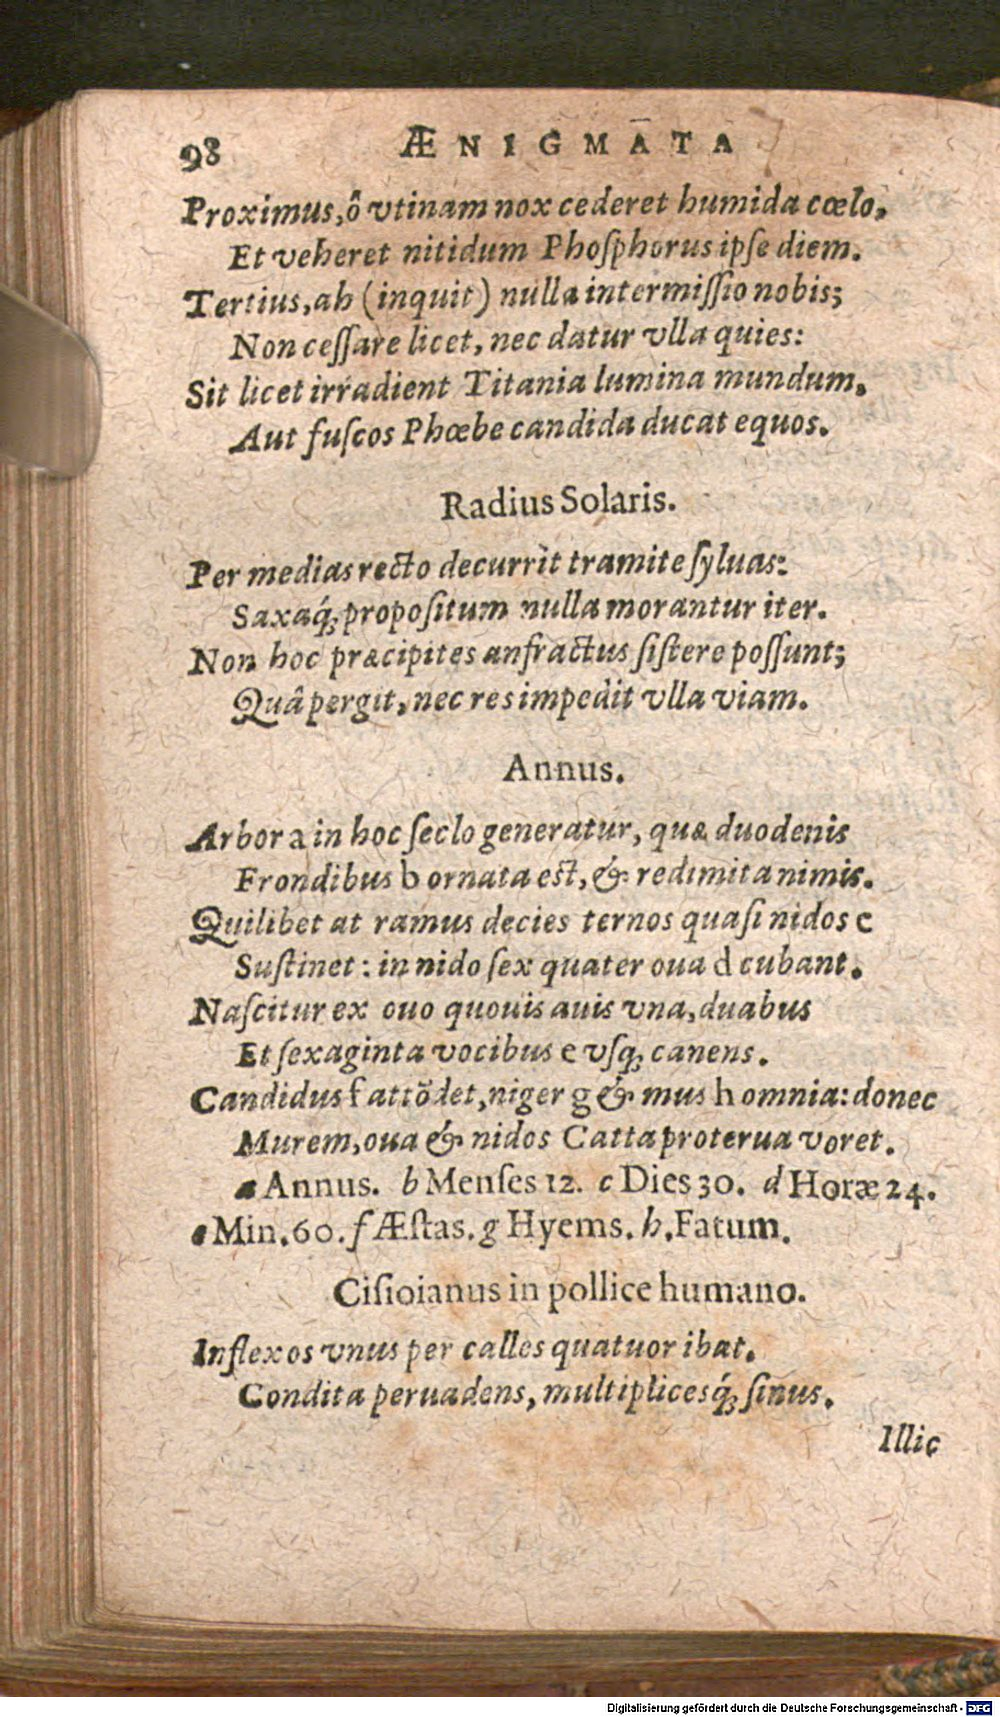 98 ÆNIGMATA
Proximus, ô vtinam nox cederet humida cœlo,
Et veheret nitidum Phoſphorus ipſe diem.
Tertius, ah (inquit) nulla intermiſſio nobis;
Non ceſſare licet, nec datur vlla quies:
Sit licet irradient Titania lumina mundum,
Aut fuſcos Phœbe candida ducat equos.
Radius Solaris.
Per medias recto decurrit tramite ſyluas:
Saxaq́; propoſitum nulla morantur iter.
Non hoc præcipites anfractus ſiſtere poſſunt;
Quâ pergit, nec res impedit vlla viam.
Annus.
Arbor a in hoc ſeclo generatur, quæ duodenis
Frondibus b ornata eſt, & redimita nimis.
Quilibet at ramus decies ternos quaſi nidos c
Suſtinet: in nido ſex quater oua d cubant.
Naſcitur ex ouo quouis auis vna, duabus
Et ſexaginta vocibus e vſq; canens.
Candidus f attõdet, niger g & mus h omnia: donec
Murem, oua & nidos Catta proterua voret.
a Annus. b Menſes 12. c Dies 30. d Horæ 24.
e Min. 60. f Æſtas. g Hyems. h. Fatum.
Ciſioianus in pollice humano.
Inflexos vnus per calles quatuor ibat.
Condita peruadens, multiplicesq́; ſinus.
Illic
Digitalisierung gefördert durch die Deutsche Forschungsgemeinschaft - DFG